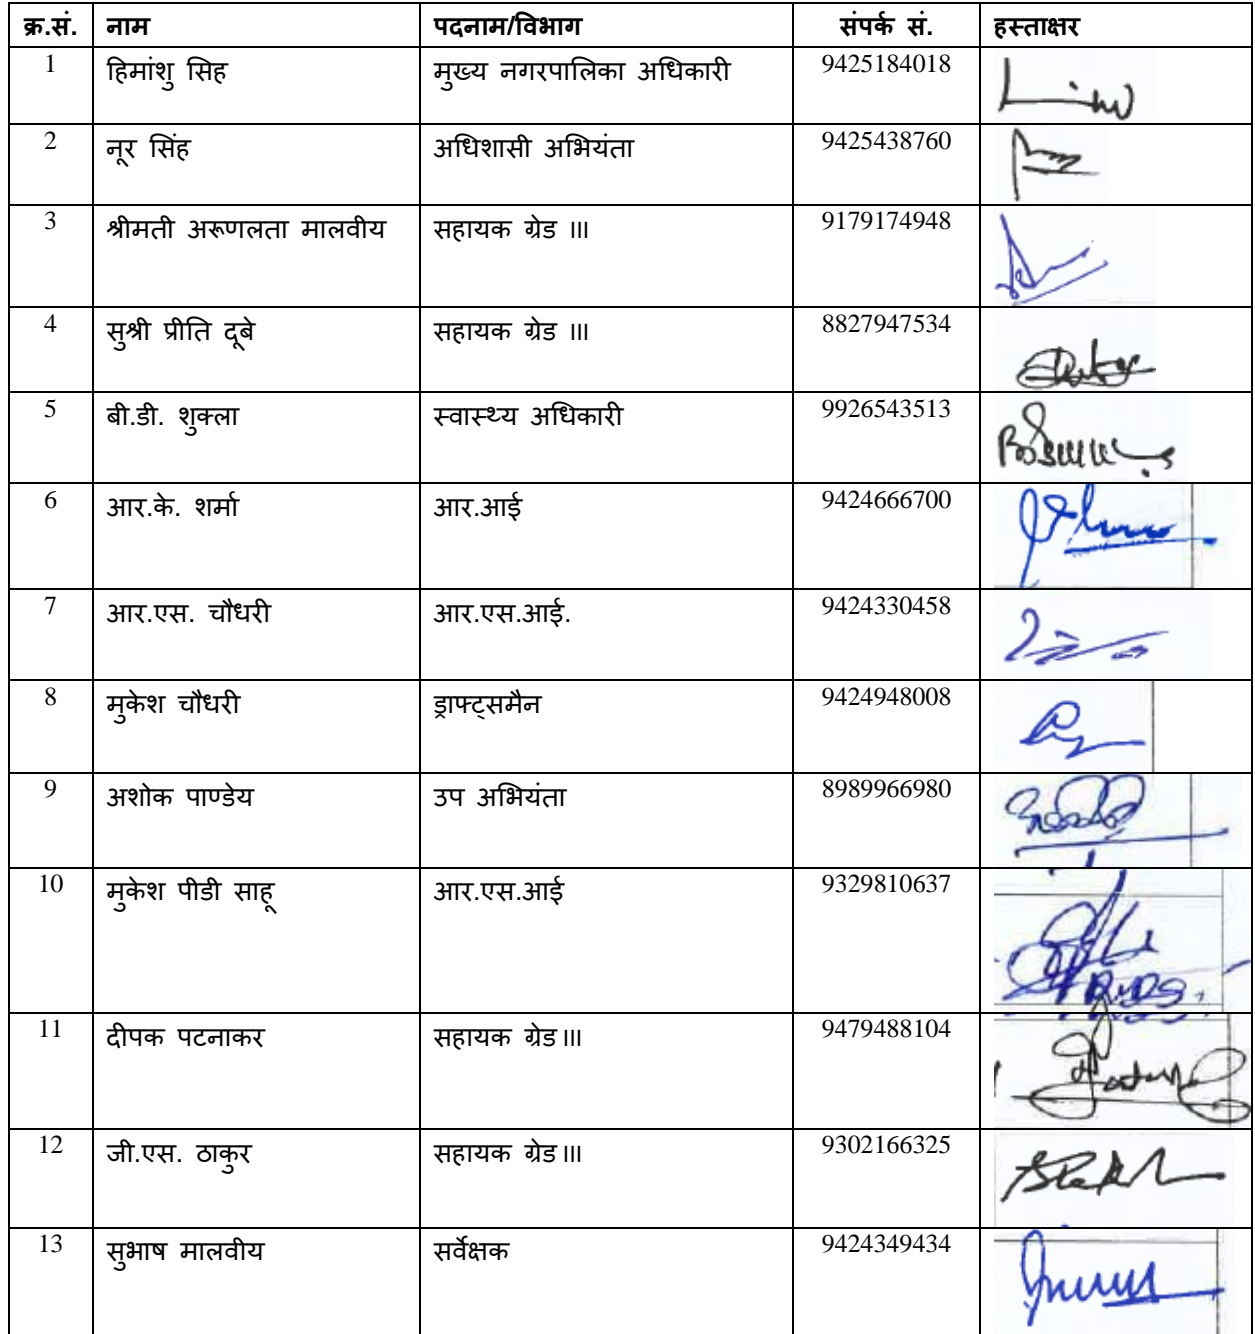 क्र.सं. नाम पदनाम/विभाग संपर्क सं. हस्ताक्षर
1 हिमांशु सिह मुख्य नगरपालिका अधिकारी 9425184018
2 नूर सिंह अधिशासी अभियंता 9425438760
3 श्रीमती अरूणलता मालवीय सहायक ग्रेड III 9179174948
4 सुश्री प्रीति दूबे सहायक ग्रेड III 8827947534
5 बी.डी. शुक्ला स्वास्थ्य अधिकारी 9926543513
6 आर.के. शर्मा आर.आई 9424666700
7 आर.एस. चौधरी आर.एस.आई. 9424330458
8 मुकेश चौधरी ड्राफ्ट्समैन 9424948008
9 अशोक पाण्डेय उप अभियंता 8989966980
10 मुकेश पीडी साहू आर.एस.आई 9329810637
11 दीपक पटनाकर सहायक ग्रेड III 9479488104
12 जी.एस. ठाकुर सहायक ग्रेड III 9302166325
13 सुभाष मालवीय सर्वेक्षक 9424349434